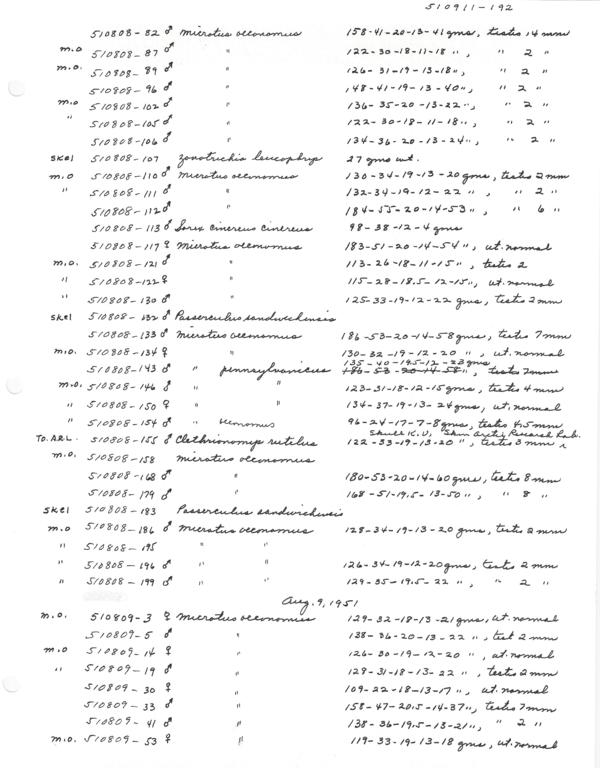 510911-192
510808-82 ♂ Microtus oeconomus 158-41-20-13-41 gms, testis 14 mm
m.o 510808-87 ♂ " 122-30-18-11-18 ", " 2 "
m.o. 510808-89 ♂ " 126-31-19-13-18 ", " 2 "
510808-96 ♂ " 148-41-19-13-40 ", " 2 "
m.o 510808-102 ♂ " 136-35-20-13-22 ", " 2 "
" 510808-105 ♂ " 122-30-18-11-18 ", " 2 "
510808-106 ♂ " 134-36-20-13-24 ", " 2 "
skel 510808-107 Zonotrichia leucophrys 27 gms wt.
m.o 510808-110 ♂ Microtus oeconomus 130-34-19-13-20 gms, testis 2 mm
" 510808-111 ♂ " 132-34-19-12-22 ", " 2 "
510808-112 ♂ " 184-55-20-14-53 ", " 6 "
510808-113 ♂ Sorex cinereus cinereus 98-38-12-4 gms
510808-117 ♀ Microtus oeconomus 183-51-20-14-54 ", ut. normal
m.o. 510808-121 ♂ " 113-26-18-11-15 ", testis 2
" 510808-122 ♀ " 115-28-18.5-12-15 ", ut. normal
" 510808-130 ♂ " 125-33-19-12-22 gms, testis 2 mm
skel 510808-132 ♂ Passerculus sandwichensis
510808-133 ♂ Microtus oeconomus 186-53-20-14-58 gms, testis 7 mm
m.o. 510808-134 ♀ " 130-32-19-12-20 ", ut. normal
135-40-19.5-12-23 gms
510808-143 ♂ " pennsylvanicus 186-53-20-14-58 ", testis 7 mm
m.o. 510808-146 ♂ " " 123-31-18-12-15 gms, testis 4 mm
" 510808-150 ♀ " " 134-37-19-13-24 gms, ut. normal
" 510808-154 ♂ " oeconomus 96-24-17-7-8 gms, testis 4.5 mm
Skull K.U., Skin Arctic Research Lab.
To A.R.L. 510808-155 ♂ Clethrionomys rutilus 122-33-19-13-20 ", testis 3 mm x
m.o. 510808-158 Microtus oeconomus
510808-168 ♂ " 180-53-20-14-60 gms, testis 8 mm
510808-179 ♂ " 168-51-19.5-13-50 ", " 8 "
skel 510808-183 Passerculus sandwichensis
m.o 510808-186 ♂ Microtus oeconomus 128-34-19-13-20 gms, testis 2 mm
" 510808-195 " "
" 510808-196 ♂ " " 126-34-19-12-20 gms, testis 2 mm
" 510808-199 ♂ " " 129-35-19.5-22 ", " 2 "
Aug. 9, 1951
m.o. 510809-3 ♀ Microtus oeconomus 129-32-18-13-21 gms, ut. normal
510809-5 ♂ " 138-36-20-13-22 ", test 2 mm
m.o 510809-14 ♀ " 126-30-19-12-20 ", ut. normal
" 510809-19 ♂ " 129-31-18-13-22 ", testis 2 mm
510809-30 ♀ " 109-22-18-13-17 ", ut. normal
510809-33 ♂ " 158-47-20.5-14-37 ", testis 7 mm
510809-41 ♂ " 138-36-19.5-13-21 ", " 2 "
m.o. 510809-53 ♀ " 119-33-19-13-18 gms, ut. normal